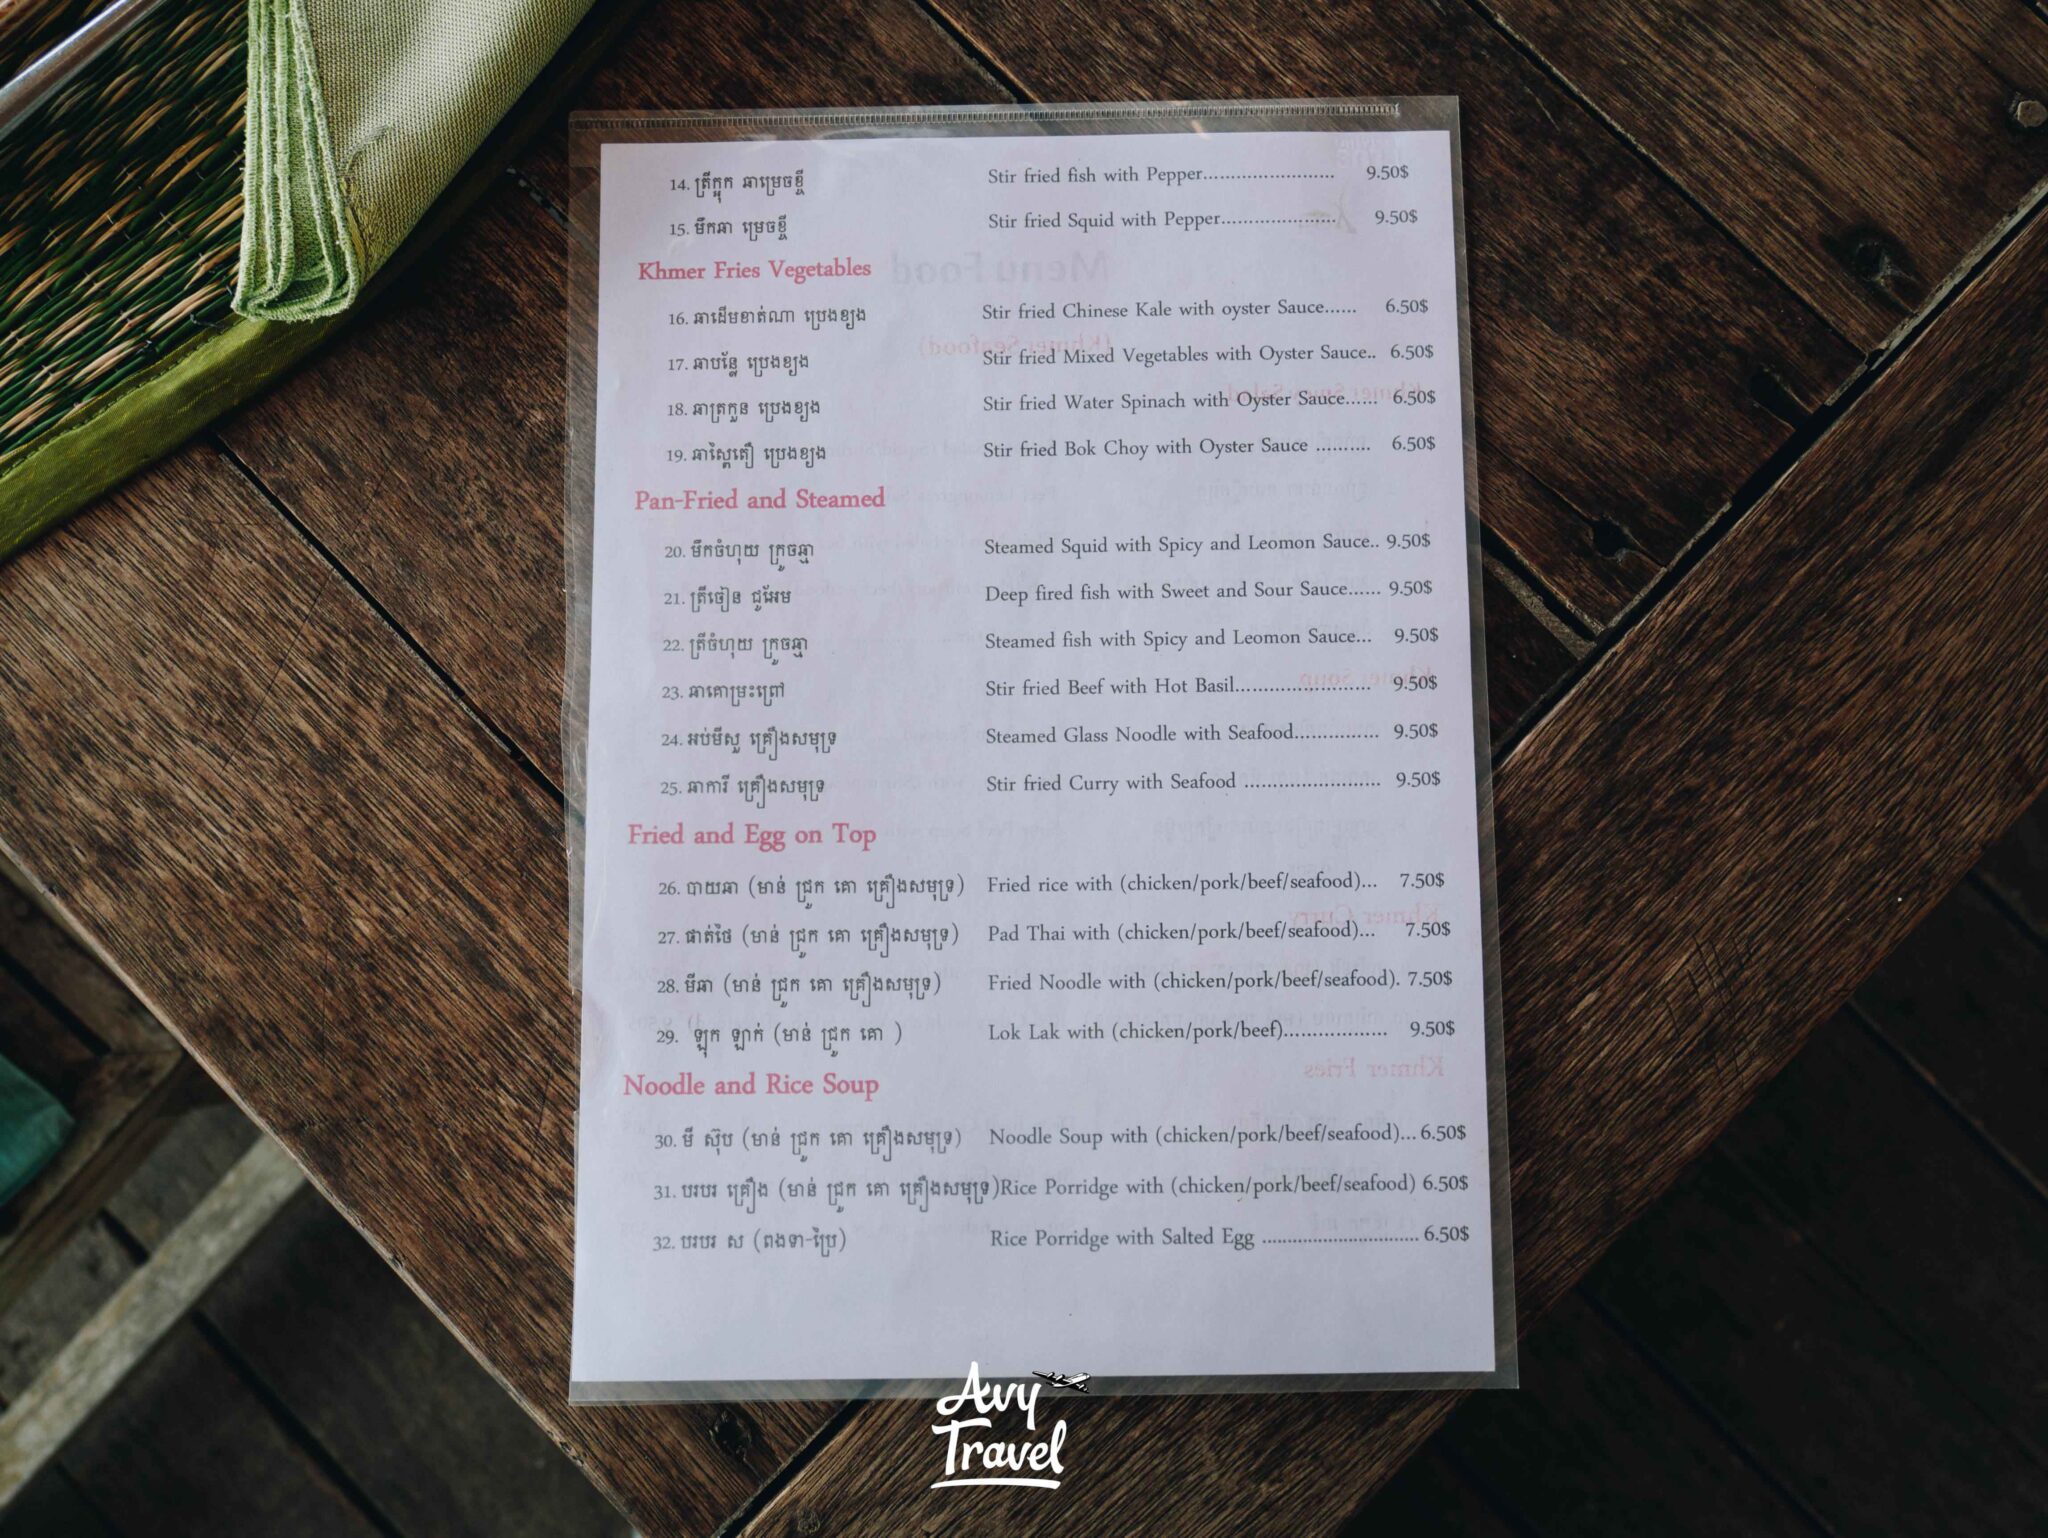 14. ត្រីក្អុក ឆាម្រេចខ្ចី Stir fried fish with Pepper........................ 9.50$
15. មឹកឆា ម្រេចខ្ចី Stir fried Squid with Pepper..................... 9.50$
Khmer Fries Vegetables
16. ឆាដើមខាត់ណា ប្រេងខ្យង Stir fried Chinese Kale with oyster Sauce...... 6.50$
17. ឆាបន្លែ ប្រេងខ្យង Stir fried Mixed Vegetables with Oyster Sauce.. 6.50$
18. ឆាត្រកួន ប្រេងខ្យង Stir fried Water Spinach with Oyster Sauce...... 6.50$
19. ឆាស្ពៃតឿ ប្រេងខ្យង Stir fried Bok Choy with Oyster Sauce .......... 6.50$
Pan-Fried and Steamed
20. មឹកចំហុយ ក្រូចឆ្មា Steamed Squid with Spicy and Leomon Sauce.. 9.50$
21. ត្រីចៀន ជូអែម Deep fired fish with Sweet and Sour Sauce...... 9.50$
22. ត្រីចំហុយ ក្រូចឆ្មា Steamed fish with Spicy and Leomon Sauce... 9.50$
23. ឆាគោម្រះព្រៅ Stir fried Beef with Hot Basil......................... 9.50$
24. អប់មីសួ គ្រឿងសមុទ្រ Steamed Glass Noodle with Seafood............... 9.50$
25. ឆាការី គ្រឿងសមុទ្រ Stir fried Curry with Seafood ........................ 9.50$
Fried and Egg on Top
26. បាយឆា (មាន់ ជ្រូក គោ គ្រឿងសមុទ្រ) Fried rice with (chicken/pork/beef/seafood)... 7.50$
27. ផាត់ថៃ (មាន់ ជ្រូក គោ គ្រឿងសមុទ្រ) Pad Thai with (chicken/pork/beef/seafood)... 7.50$
28. មីឆា (មាន់ ជ្រូក គោ គ្រឿងសមុទ្រ) Fried Noodle with (chicken/pork/beef/seafood). 7.50$
29. ឡុក ឡាក់ (មាន់ ជ្រូក គោ ) Lok Lak with (chicken/pork/beef)................... 9.50$
Noodle and Rice Soup
30. មី ស៊ុប (មាន់ ជ្រូក គោ គ្រឿងសមុទ្រ) Noodle Soup with (chicken/pork/beef/seafood)... 6.50$
31. បរបរ គ្រឿង (មាន់ ជ្រូក គោ គ្រឿងសមុទ្រ)Rice Porridge with (chicken/pork/beef/seafood) 6.50$
32. បរបរ ស (ពងទា-ប្រៃ) Rice Porridge with Salted Egg ................................ 6.50$
Avy
Travel